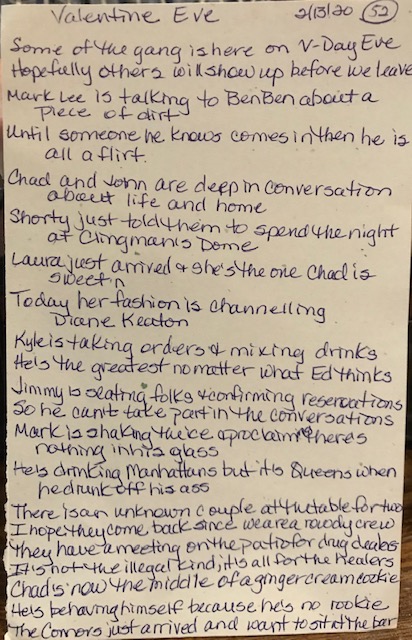 Valentine Eve 2/13/20 52
Some of the gang is here on V-Day Eve
Hopefully others will show up before we leave
Mark Lee is talking to BenBen about a
piece of dirt
Until someone he knows comes in then he is
all a flirt.
Chad and John are deep in conversation
about life and home
Shorty just told them to spend the night
at Clingman's Dome
Laura just arrived & she's the one Chad is
sweet'n
Today her fashion is channelling
Diane Keaton
Kyle is taking orders & mixing drinks
He's the greatest no matter what Ed thinks
Jimmy is seating folks & confirming reservations
So he can't take part in the conversations
Mark is shaking the ice & proclaim there's
nothing in his glass
He's drinking Manhattans but it's Queens when
he drunk off his ass
There is an unknown couple at the table for two
I hope they come back since we are a rowdy crew
They have a meeting on the patio for drug dealers
It is not the illegal kind, it's all for the Healers
Chad is now the middle of a ginger cream cookie
He's behaving himself because he's no rookie
The Connors just arrived and want to sit at the bar